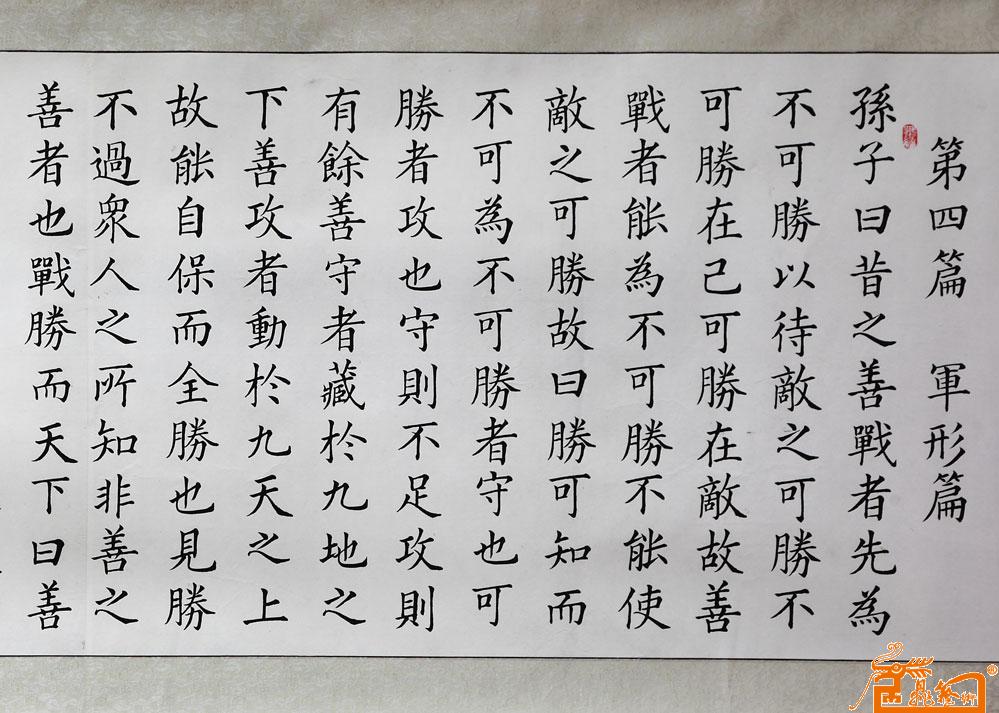 第四篇 軍形篇
孫子曰昔之善戰者先為
不可勝以待敵之可勝不
可勝在己可勝在敵故善
戰者能為不可勝不能使
敵之可勝故曰勝可知而
不可為不可勝者守也可
勝者攻也守則不足攻則
有餘善守者藏於九地之
下善攻者動於九天之上
故能自保而全勝也見勝
不過眾人之所知非善之
善者也戰勝而天下曰善